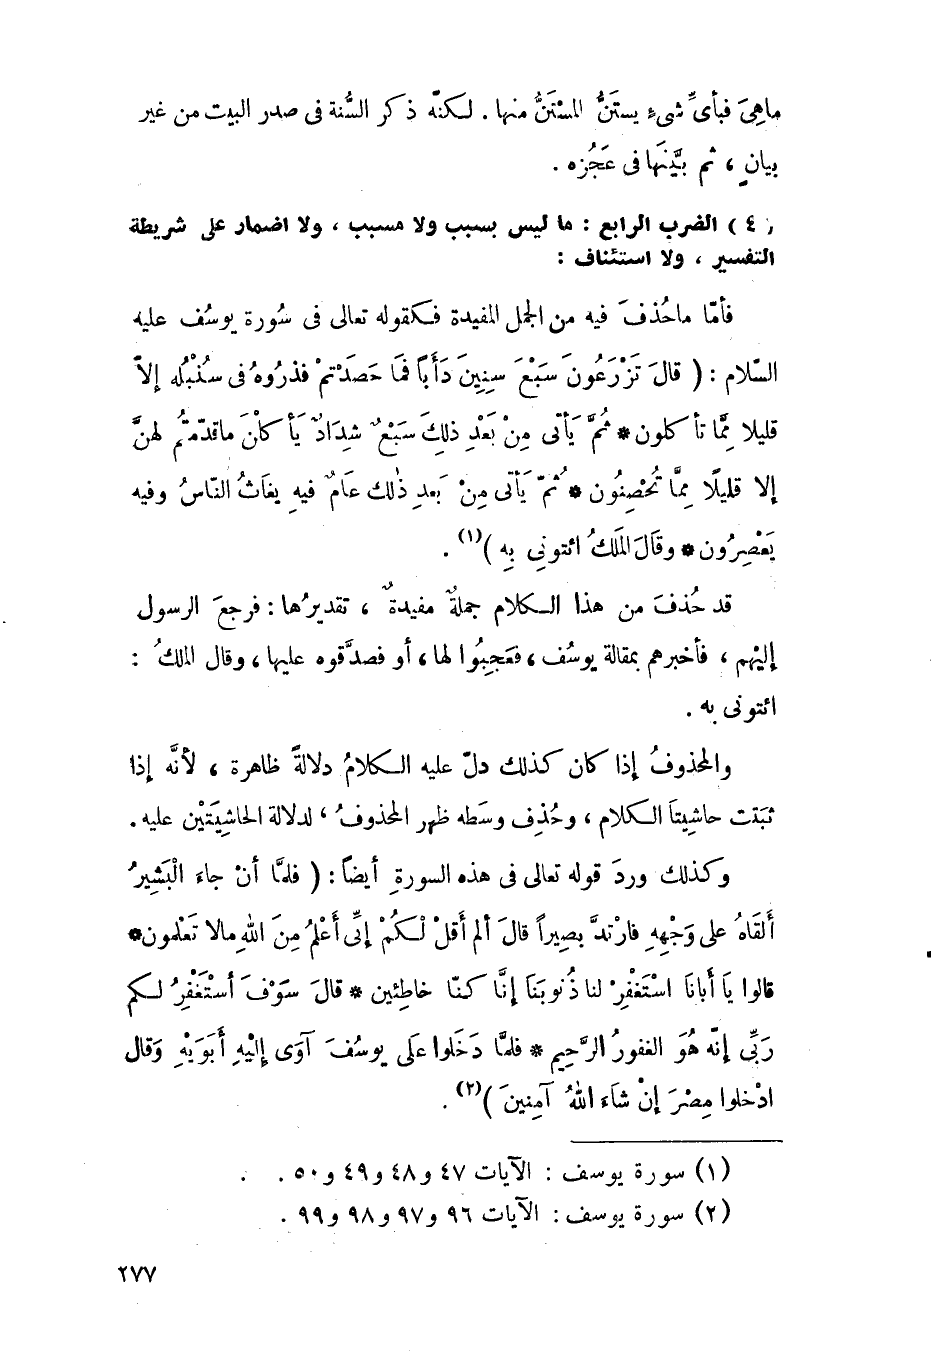 ماهِىَ فبأىِّ شىء يستَنُّ المسْتَنُّ منها . لكنّه ذكر السُّنة فى صدر البيت من غير
بيانٍ ، ثم بيَّنَها فى عَجُزه .
( ٤ ) الضرب الرابع : ما ليس بسبب ولا مسبب ، ولا اضمار على شريطة
التفسير ، ولا استئناف :
فأمّا ماحُذفَ فيه من الجمل المفيدة فكقوله تعالى فى سُورة يوسُف عليه
السّلام : ( قالَ تَزْرَعُونَ سَبْعَ سنِينَ دَأَباً فمَا حَصَدْتمْ فذرُوهُ فى سُنْبُله إلاّ
قليلا ممَّا تأكلون * ثمَّ يَأتى مِنْ بَعْدِ ذلِكَ سَبْعٌ شِدَادٌ يَأكلْنَ ماقدّمتُم لهنَّ
إلا قليلًا ممَّا تُحْصِنُون * ثمّ يَأتى مِنْ بَعدِ ذٰلك عَامٌ فيهِ يغَاثُ النّاسُ وفيه
يَعْصِرُون * وقَالَ المَلكُ ائتونِى بِهِ )(١) .
قد حُذفَ من هذا الكلام جملةٌ مفيدةٌ ، تقديرُها : فرجعَ الرسول
إليْهم ، فأخبرهم بمقالة يوسُف ، فعَجِبُوا لها ، أو فصدَّقوه عليها ، وقال الملكُ :
ائتونى به .
والمحذوفُ إذا كان كذلك دلّ عليه الكلامُ دلالةً ظاهرة ، لأنَّه إذا
ثبَتت حاشِيتاَ الكلام ، وحُذِف وسَطه ظهر المحذوفُ ، لدلالة الحاشِيَتَيْن عليه .
وكذلك وردَ قوله تعالى فى هذه السورةِ أيضاً : ( فلمَّا أنْ جاءَ الْبَشيرُ
ألقَاهُ على وَجْههِ فارْتدَّ بصِيراً قالَ ألم أقلْ لْكُمْ إنِّى أعْلمُ مِنَ اللهِ مالا تَعْلمون *
قالوا يَا أبانَا اسْتَغْفِرْ لنا ذُنوبَنَا إنَّا كنّا خاطِئين * قالَ سَوْفَ أسْتَغْفِرُ لكم
رَبِّى إنّه هُوَ الغفورُ الرَّحِيم * فلمَّا دَخَلوا عَلى يوسُفَ آوَى إليْهِ أبَوَيْهِ وَقال
ادْخلوا مِصْرَ إنْ شَاءَ اللهُ آمِنينَ )(٢) .
(١) سورة يوسف : الآيات ٤٧ و٤٨ و٤٩ و٥٠ .
(٢) سورة يوسف : الآيات ٩٦ و٩٧ و٩٨ و٩٩ .
٢٧٧